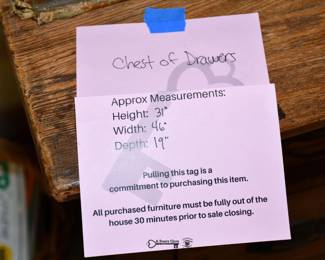 Chest of Drawers
Approx Measurements:
Height: 31"
Width: 46"
Depth: 19"
Pulling this tag is a
commitment to purchasing this item.
All purchased furniture must be fully out of the
house 30 minutes prior to sale closing.